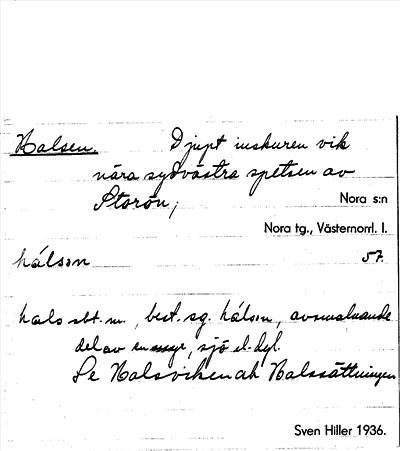 Halsen. Djupt inskuren vik
nära sydvästra spetsen av
Storön; Nora s:n
Nora tg., Västernorrl. l.
hálsɜn 57.
hals sbt. m., best. sg. hálsɜn, avsmalnande
del av en sjö el. dyl.
Se Halsviken ah Halssättningen
Sven Hiller 1936.